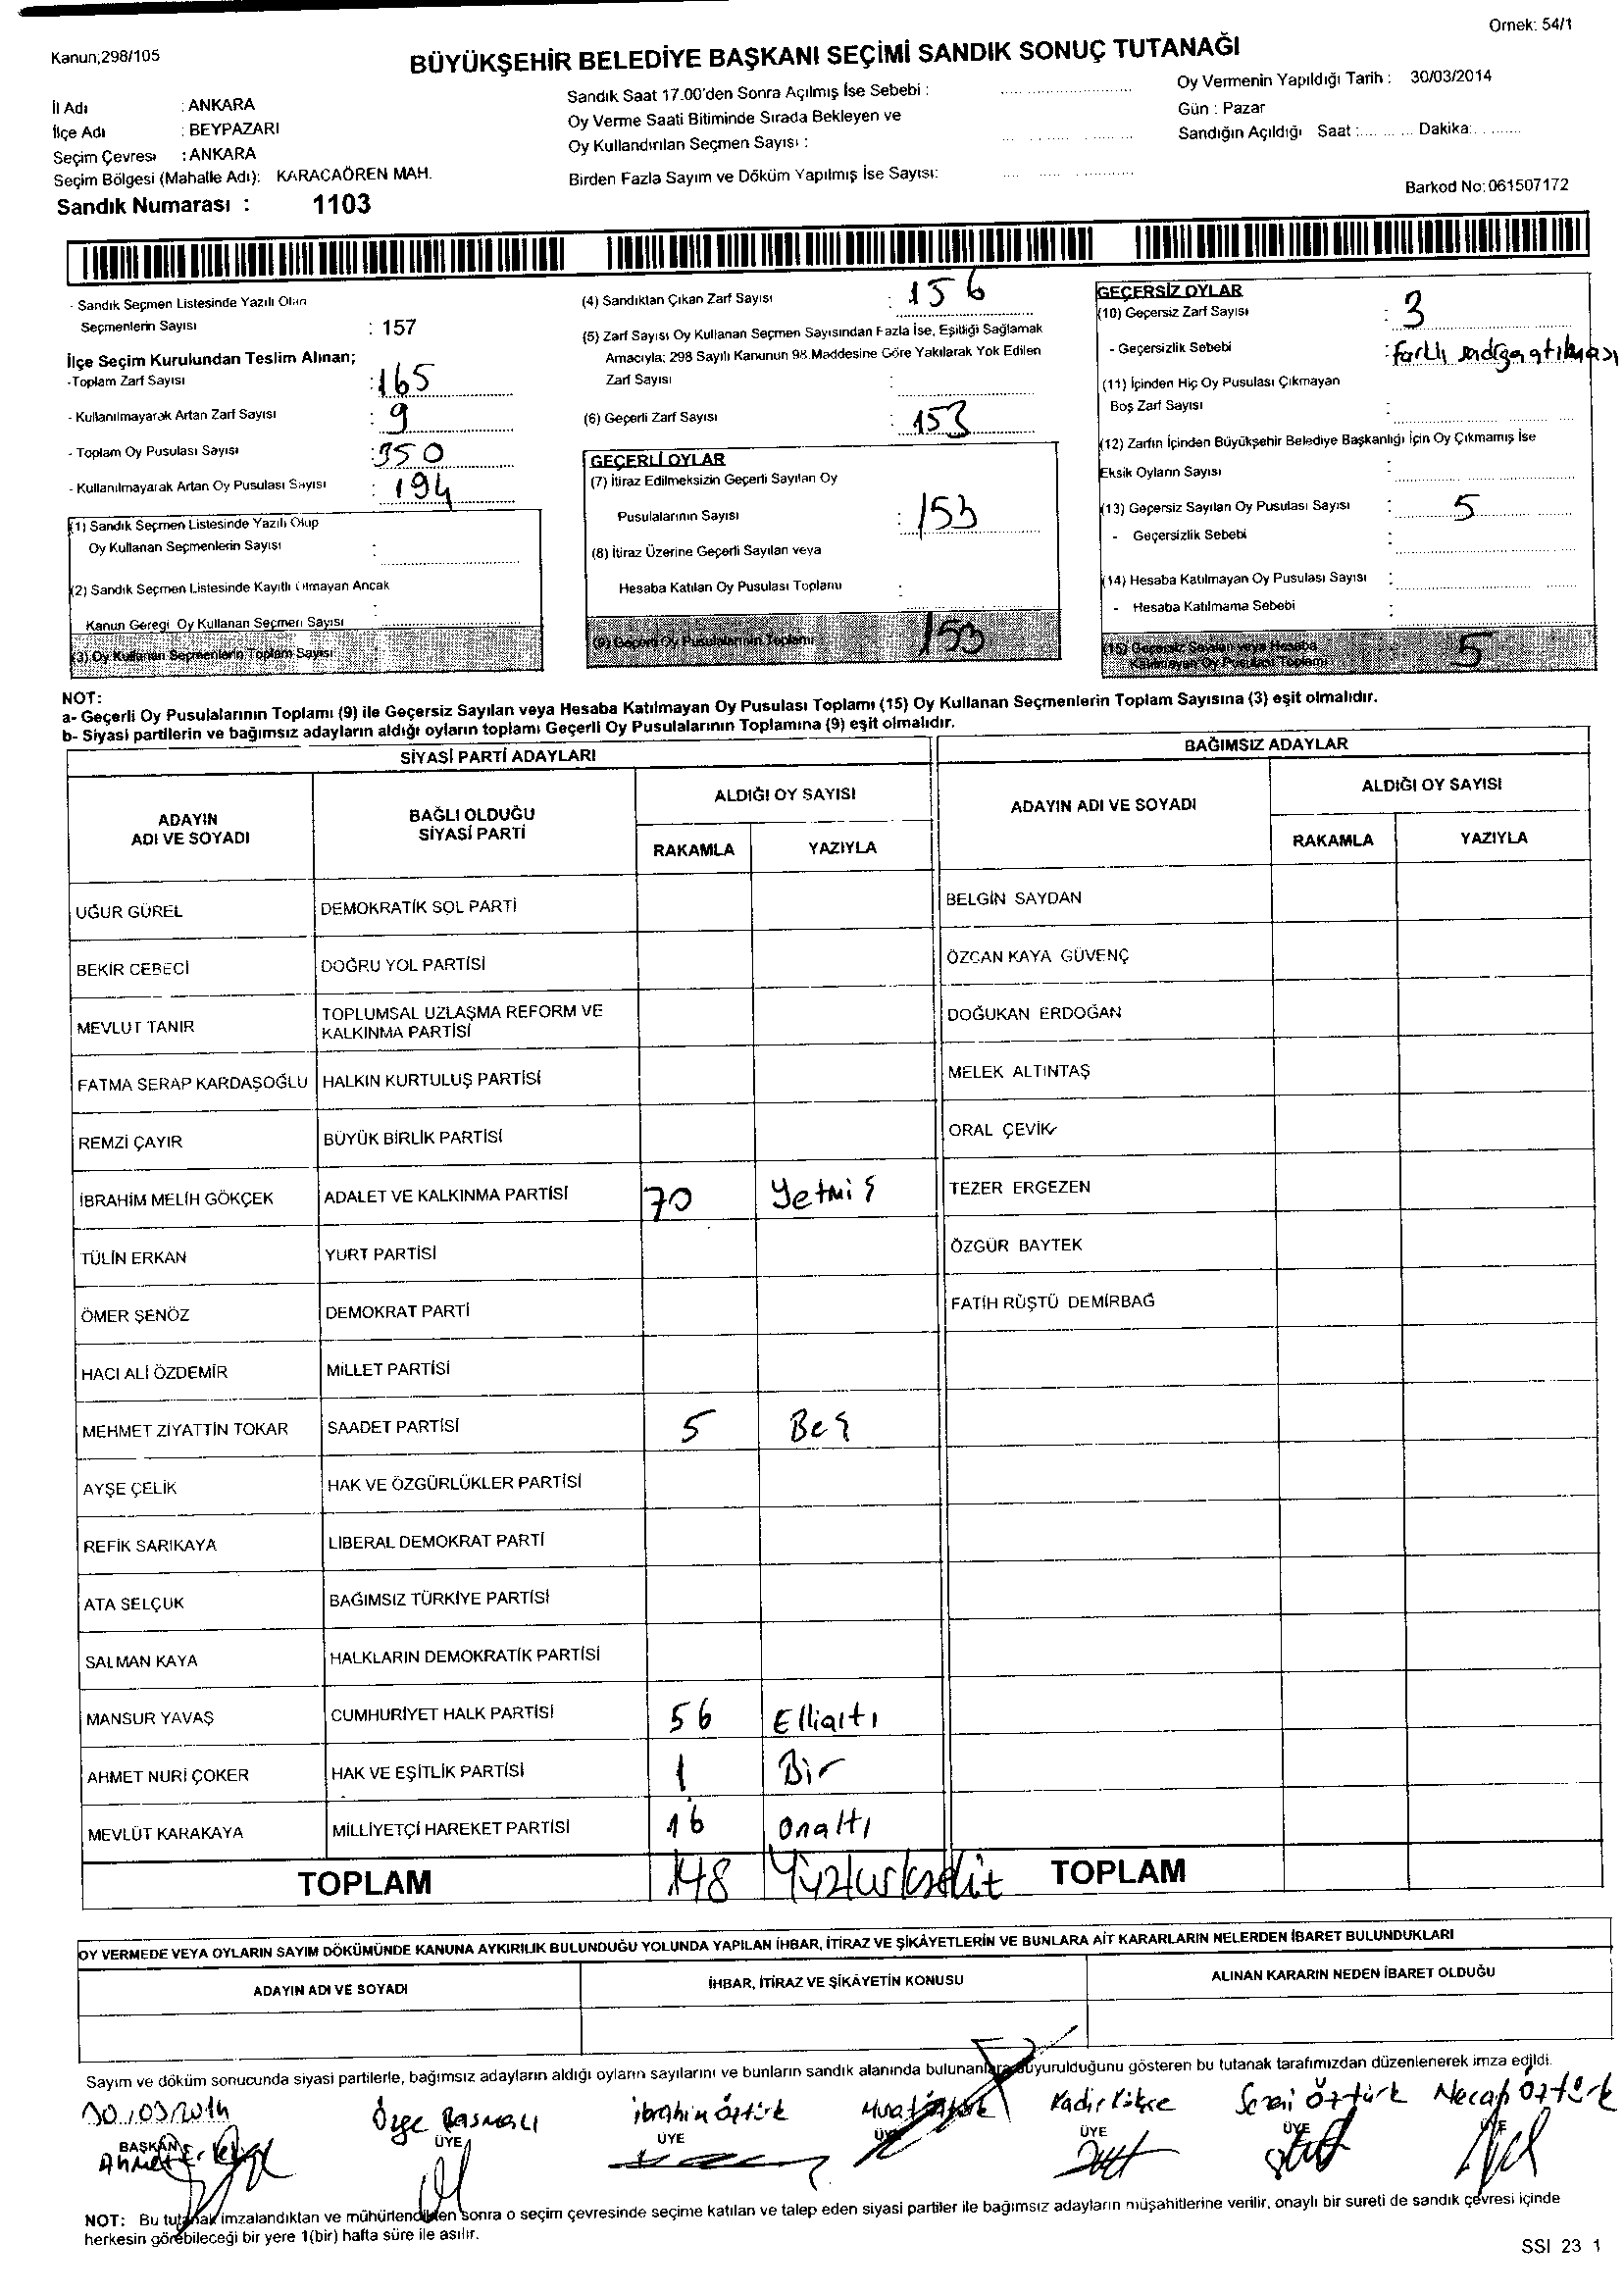 Örnek: 54/1
Kanun;298/105
BÜYÜKŞEHİR BELEDİYE BAŞKANI SEÇİMİ SANDIK SONUÇ TUTANAĞI
İl Adı : ANKARA
İlçe Adı : BEYPAZARI
Seçim Çevresi : ANKARA
Seçim Bölgesi (Mahalle Adı): KARACAÖREN MAH.
Sandık Numarası : 1103
Sandık Saat 17.00'den Sonra Açılmış İse Sebebi :
Oy Verme Saati Bitiminde Sırada Bekleyen ve
Oy Kullandırılan Seçmen Sayısı :
Birden Fazla Sayım ve Döküm Yapılmış İse Sayısı:
Oy Vermenin Yapıldığı Tarih : 30/03/2014
Gün : Pazar
Sandığın Açıldığı Saat :...... ... Dakika:.........
Barkod No:061507172
- Sandık Seçmen Listesinde Yazılı Olan
Seçmenlerin Sayısı : 157
İlçe Seçim Kurulundan Teslim Alınan;
-Toplam Zarf Sayısı : 165
- Kullanılmayarak Artan Zarf Sayısı : 9
- Toplam Oy Pusulası Sayısı : 350
- Kullanılmayarak Artan Oy Pusulası Sayısı : 194
(1) Sandık Seçmen Listesinde Yazılı Olup
Oy Kullanan Seçmenlerin Sayısı :
(2) Sandık Seçmen Listesinde Kayıtlı Olmayan Ancak
Kanun Gereği Oy Kullanan Seçmen Sayısı :
(3) Oy Kullanan Seçmenlerin Toplam Sayısı
(4) Sandıktan Çıkan Zarf Sayısı : 156
(5) Zarf Sayısı Oy Kullanan Seçmen Sayısından Fazla İse, Eşitliği Sağlamak
Amacıyla; 298 Sayılı Kanunun 98.Maddesine Göre Yakılarak Yok Edilen
Zarf Sayısı :
(6) Geçerli Zarf Sayısı : 153
GEÇERLİ OYLAR
(7) İtiraz Edilmeksizin Geçerli Sayılan Oy
Pusulalarının Sayısı : 153
(8) İtiraz Üzerine Geçerli Sayılan veya
Hesaba Katılan Oy Pusulası Toplamı :
(9) Geçerli Oy Pusulalarının Toplamı 153
GEÇERSİZ OYLAR
(10) Geçersiz Zarf Sayısı : 3
- Geçersizlik Sebebi : farklı sandığa atılması
(11) İçinden Hiç Oy Pusulası Çıkmayan
Boş Zarf Sayısı :
(12) Zarfın İçinden Büyükşehir Belediye Başkanlığı İçin Oy Çıkmamış İse
Eksik Oyların Sayısı :
(13) Geçersiz Sayılan Oy Pusulası Sayısı : 5
- Geçersizlik Sebebi :
(14) Hesaba Katılmayan Oy Pusulası Sayısı :
- Hesaba Katılmama Sebebi :
(15) Geçersiz Sayılan veya Hesaba
Katılmayan Oy Pusulası Toplamı 5
NOT:
a- Geçerli Oy Pusulalarının Toplamı (9) ile Geçersiz Sayılan veya Hesaba Katılmayan Oy Pusulası Toplamı (15) Oy Kullanan Seçmenlerin Toplam Sayısına (3) eşit olmalıdır.
b- Siyasi partilerin ve bağımsız adayların aldığı oyların toplamı Geçerli Oy Pusulalarının Toplamına (9) eşit olmalıdır.
SİYASİ PARTİ ADAYLARI
BAĞIMSIZ ADAYLAR
ADAYIN ADI VE SOYADI
BAĞLI OLDUĞU SİYASİ PARTİ
ALDIĞI OY SAYISI
RAKAMLA YAZIYLA
ADAYIN ADI VE SOYADI
ALDIĞI OY SAYISI
RAKAMLA YAZIYLA
UĞUR GÜREL DEMOKRATİK SOL PARTİ BELGİN SAYDAN
BEKİR CEBECİ DOĞRU YOL PARTİSİ ÖZCAN KAYA GÜVENÇ
MEVLUT TANIR TOPLUMSAL UZLAŞMA REFORM VE KALKINMA PARTİSİ DOĞUKAN ERDOĞAN
FATMA SERAP KARDAŞOĞLU HALKIN KURTULUŞ PARTİSİ MELEK ALTINTAŞ
REMZİ ÇAYIR BÜYÜK BİRLİK PARTİSİ ORAL ÇEVİK
İBRAHİM MELİH GÖKÇEK ADALET VE KALKINMA PARTİSİ 70 Yetmiş TEZER ERGEZEN
TÜLİN ERKAN YURT PARTİSİ ÖZGÜR BAYTEK
ÖMER ŞENÖZ DEMOKRAT PARTİ FATİH RÜŞTÜ DEMİRBAĞ
HACI ALİ ÖZDEMİR MİLLET PARTİSİ
MEHMET ZİYATTİN TOKAR SAADET PARTİSİ 5 Beş
AYŞE ÇELİK HAK VE ÖZGÜRLÜKLER PARTİSİ
REFİK SARIKAYA LİBERAL DEMOKRAT PARTİ
ATA SELÇUK BAĞIMSIZ TÜRKİYE PARTİSİ
SALMAN KAYA HALKLARIN DEMOKRATİK PARTİSİ
MANSUR YAVAŞ CUMHURİYET HALK PARTİSİ 56 Ellialtı
AHMET NURİ ÇOKER HAK VE EŞİTLİK PARTİSİ 1 Bir
MEVLÜT KARAKAYA MİLLİYETÇİ HAREKET PARTİSİ 16 Onaltı
TOPLAM 148 TOPLAM
OY VERMEDE VEYA OYLARIN SAYIM DÖKÜMÜNDE KANUNA AYKIRILIK BULUNDUĞU YOLUNDA YAPILAN İHBAR, İTİRAZ VE ŞİKÂYETLERİN VE BUNLARA AİT KARARLARIN NELERDEN İBARET BULUNDUKLARI
ADAYIN ADI VE SOYADI İHBAR, İTİRAZ VE ŞİKÂYETİN KONUSU ALINAN KARARIN NEDEN İBARET OLDUĞU
Sayım ve döküm sonucunda siyasi partilerle, bağımsız adayların aldığı oyların sayılarını ve bunların sandık alanında bulunanlara duyurulduğunu gösteren bu tutanak tarafımızdan düzenlenerek imza edildi.
30/03/2014 Özge Basmacı ibrahim öztürk Murat Kadir Kökçe Sezai Öztürk Necati Öztürk
BAŞKAN ÜYE ÜYE ÜYE ÜYE ÜYE ÜYE
Ahmet
NOT: Bu tutanak imzalandıktan ve mühürlendikten sonra o seçim çevresinde seçime katılan ve talep eden siyasi partiler ile bağımsız adayların müşahitlerine verilir, onaylı bir sureti de sandık çevresi içinde
herkesin görebileceği bir yere 1(bir) hafta süre ile asılır.
SSI 23 1